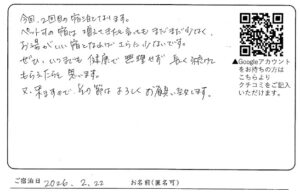 今回、2回目の宿泊でしています。
ペットOKの宿は増えてきたと言ってもまだまだ少なく、
お湯がいい宿となればさらに少ないです。
ぜひ、いつまでも健康で無理せず長く続けて
もらえたらと思います。
又、来ますので、その節はよろしくお願い致します。
▲Googleアカウント
をお持ちの方は
こちらより
クチコミをご記入
いただけます。
ご宿泊日 2026. 2. 22 お名前(匿名可)